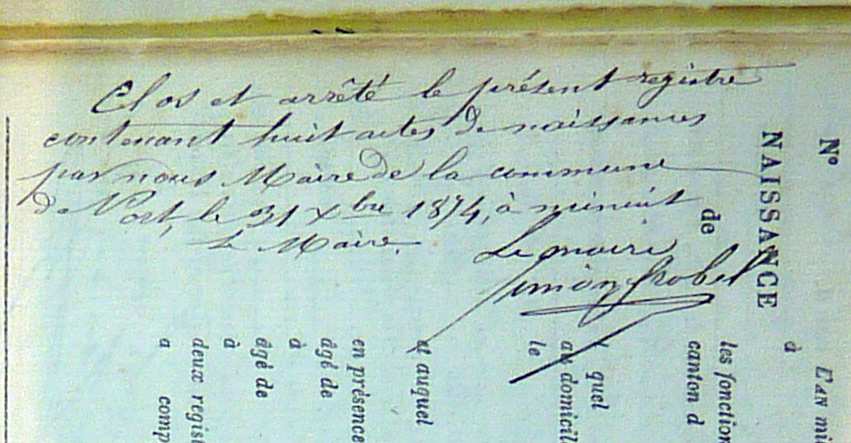 Clos et arrêté le présent registre
contenant huit actes de naissances
par nous Maire de la commune
de Port, le 31 Xbre 1874, à minuit
Le Maire.
Le maire
Simon
N°
NAISSANCE
de
à
les fonction
canton d
quel
au domicil
le
et auquel
en présence
âgé de
à
âgé de
à
deux regis
a comp